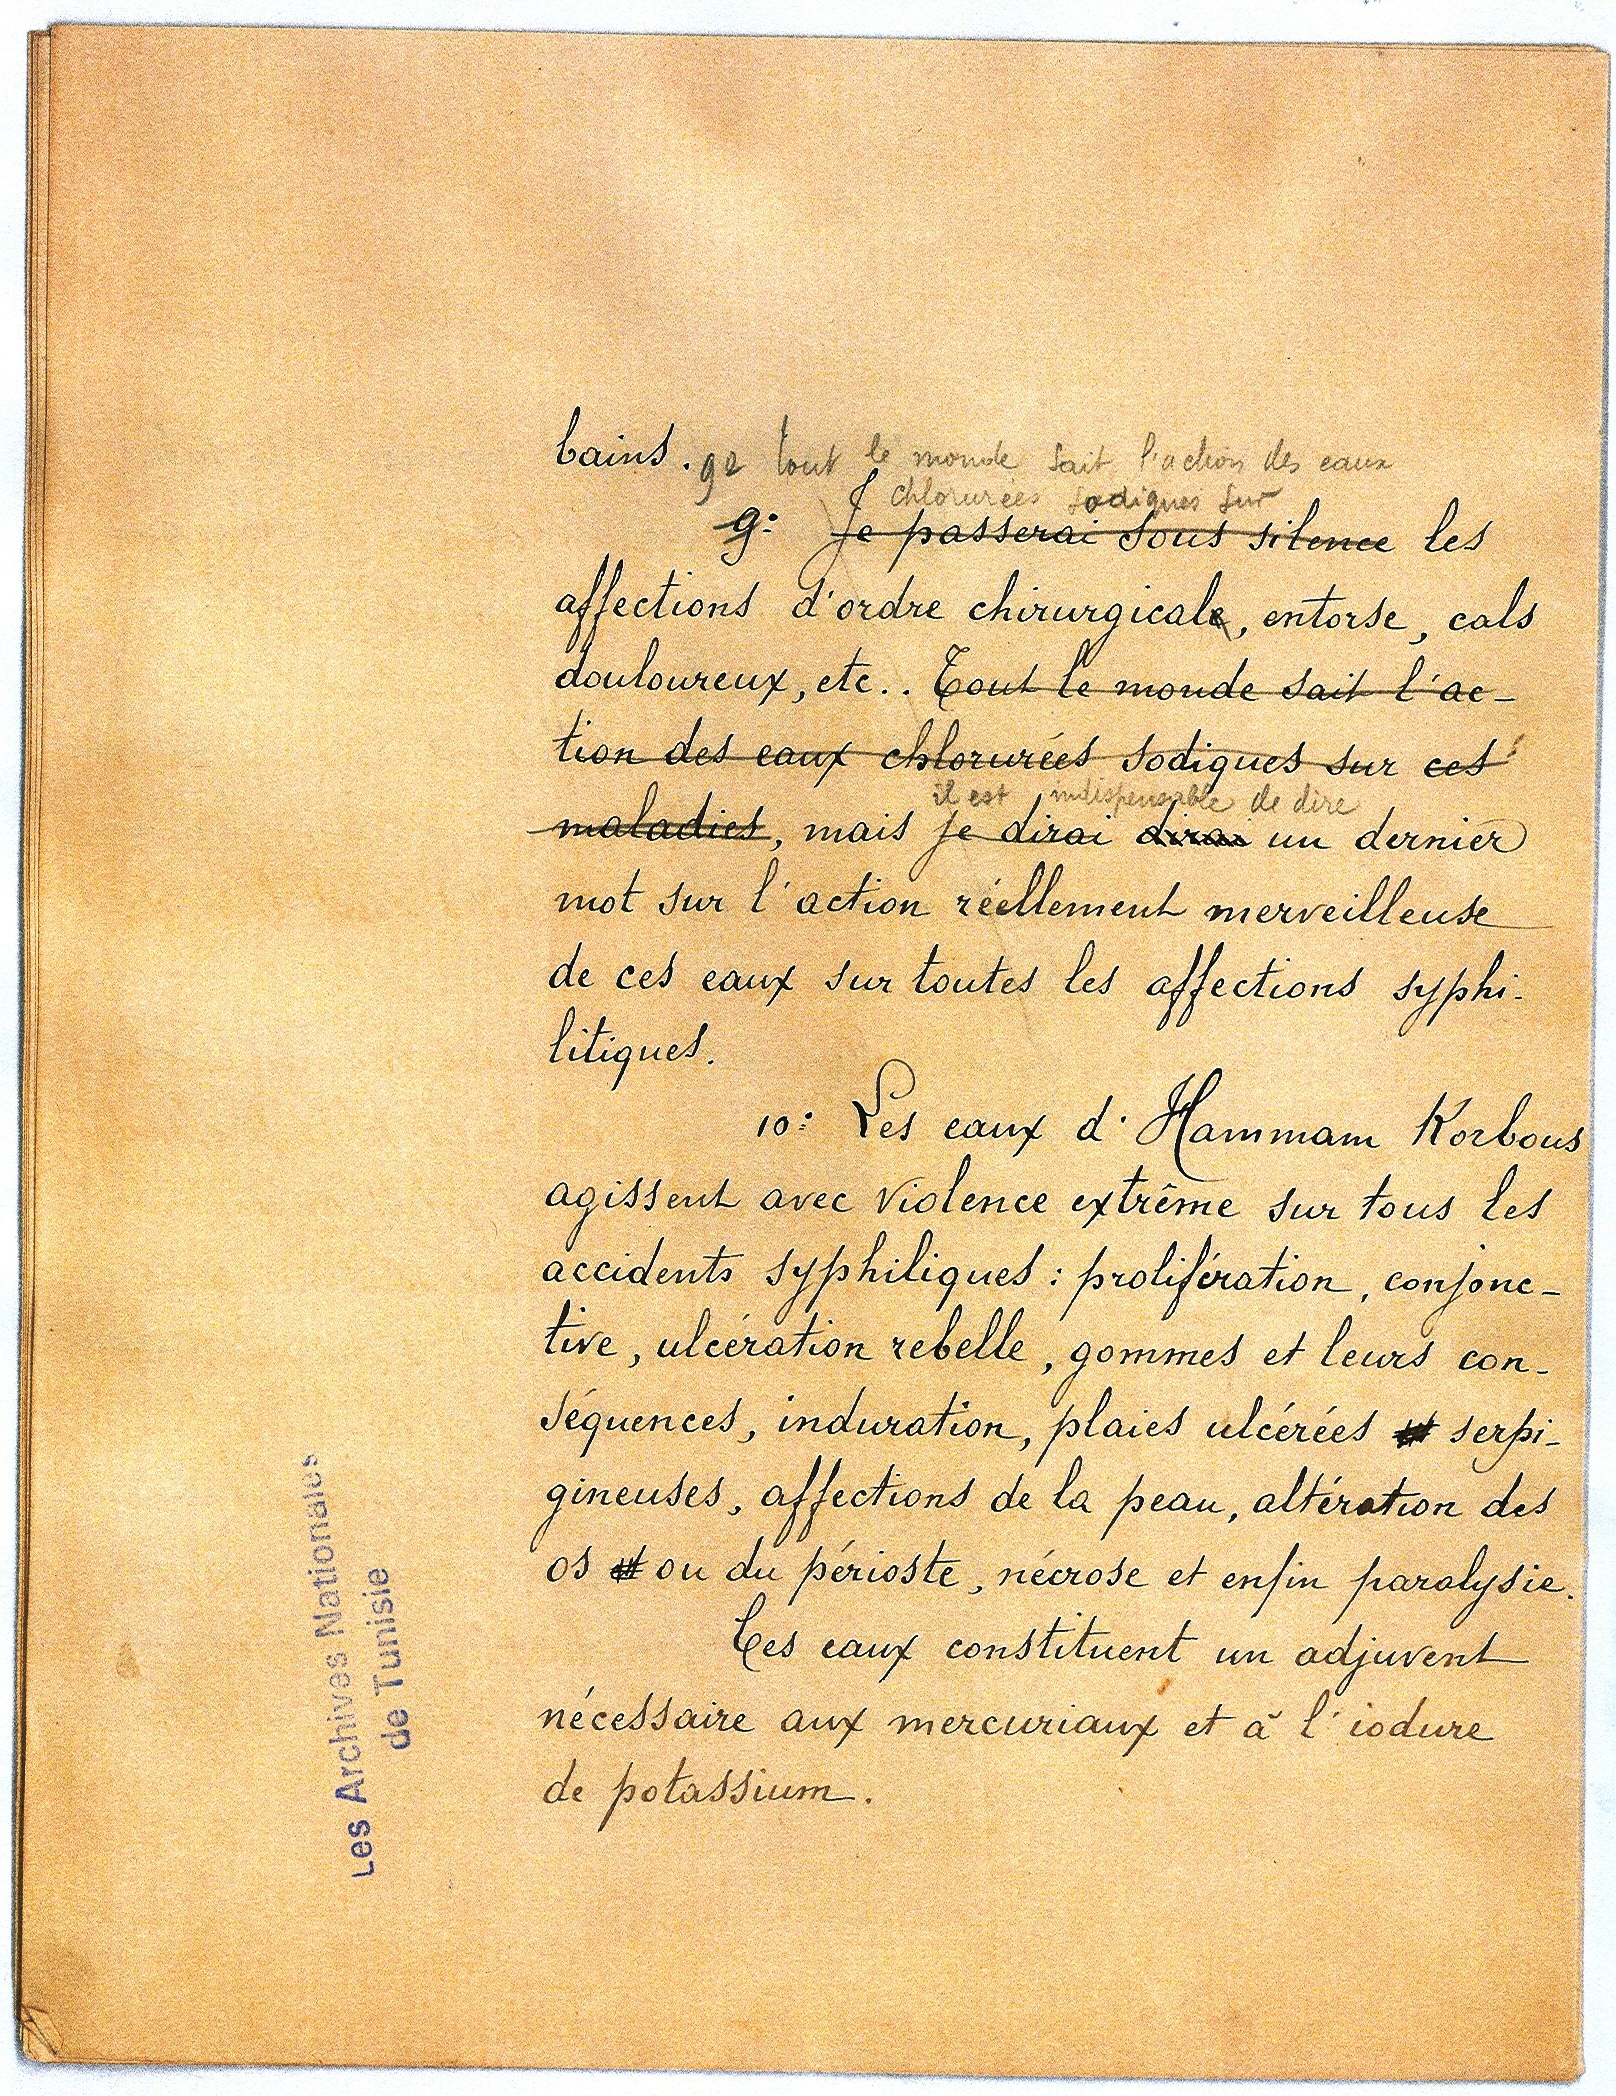 bains. 9º tout le monde sait l'action des eaux
chlorurées sodiques sur
9º Je passerai sous silence les
affections d'ordre chirurgicale, entorse, cals
douloureux, etc.. Tout le monde sait l'ac-
tion des eaux chlorurées sodiques sur ces
il est indispensable de dire
maladies, mais je dirai dirai un dernier
mot sur l'action réellement merveilleuse
de ces eaux sur toutes les affections syphi-
litiques.
10º Les eaux d'Hammam Korbous
agissent avec violence extrême sur tous les
accidents syphiliques : prolifération, conjonc-
tive, ulcération rebelle, gommes et leurs con-
séquences, induration, plaies ulcérées serpi-
gineuses, affections de la peau, altération des
os ou du périoste, nécrose et enfin paralysie.
Ces eaux constituent un adjuvent
nécessaire aux mercuriaux et à l'iodure
de potassium.
Les Archives Nationales
de Tunisie